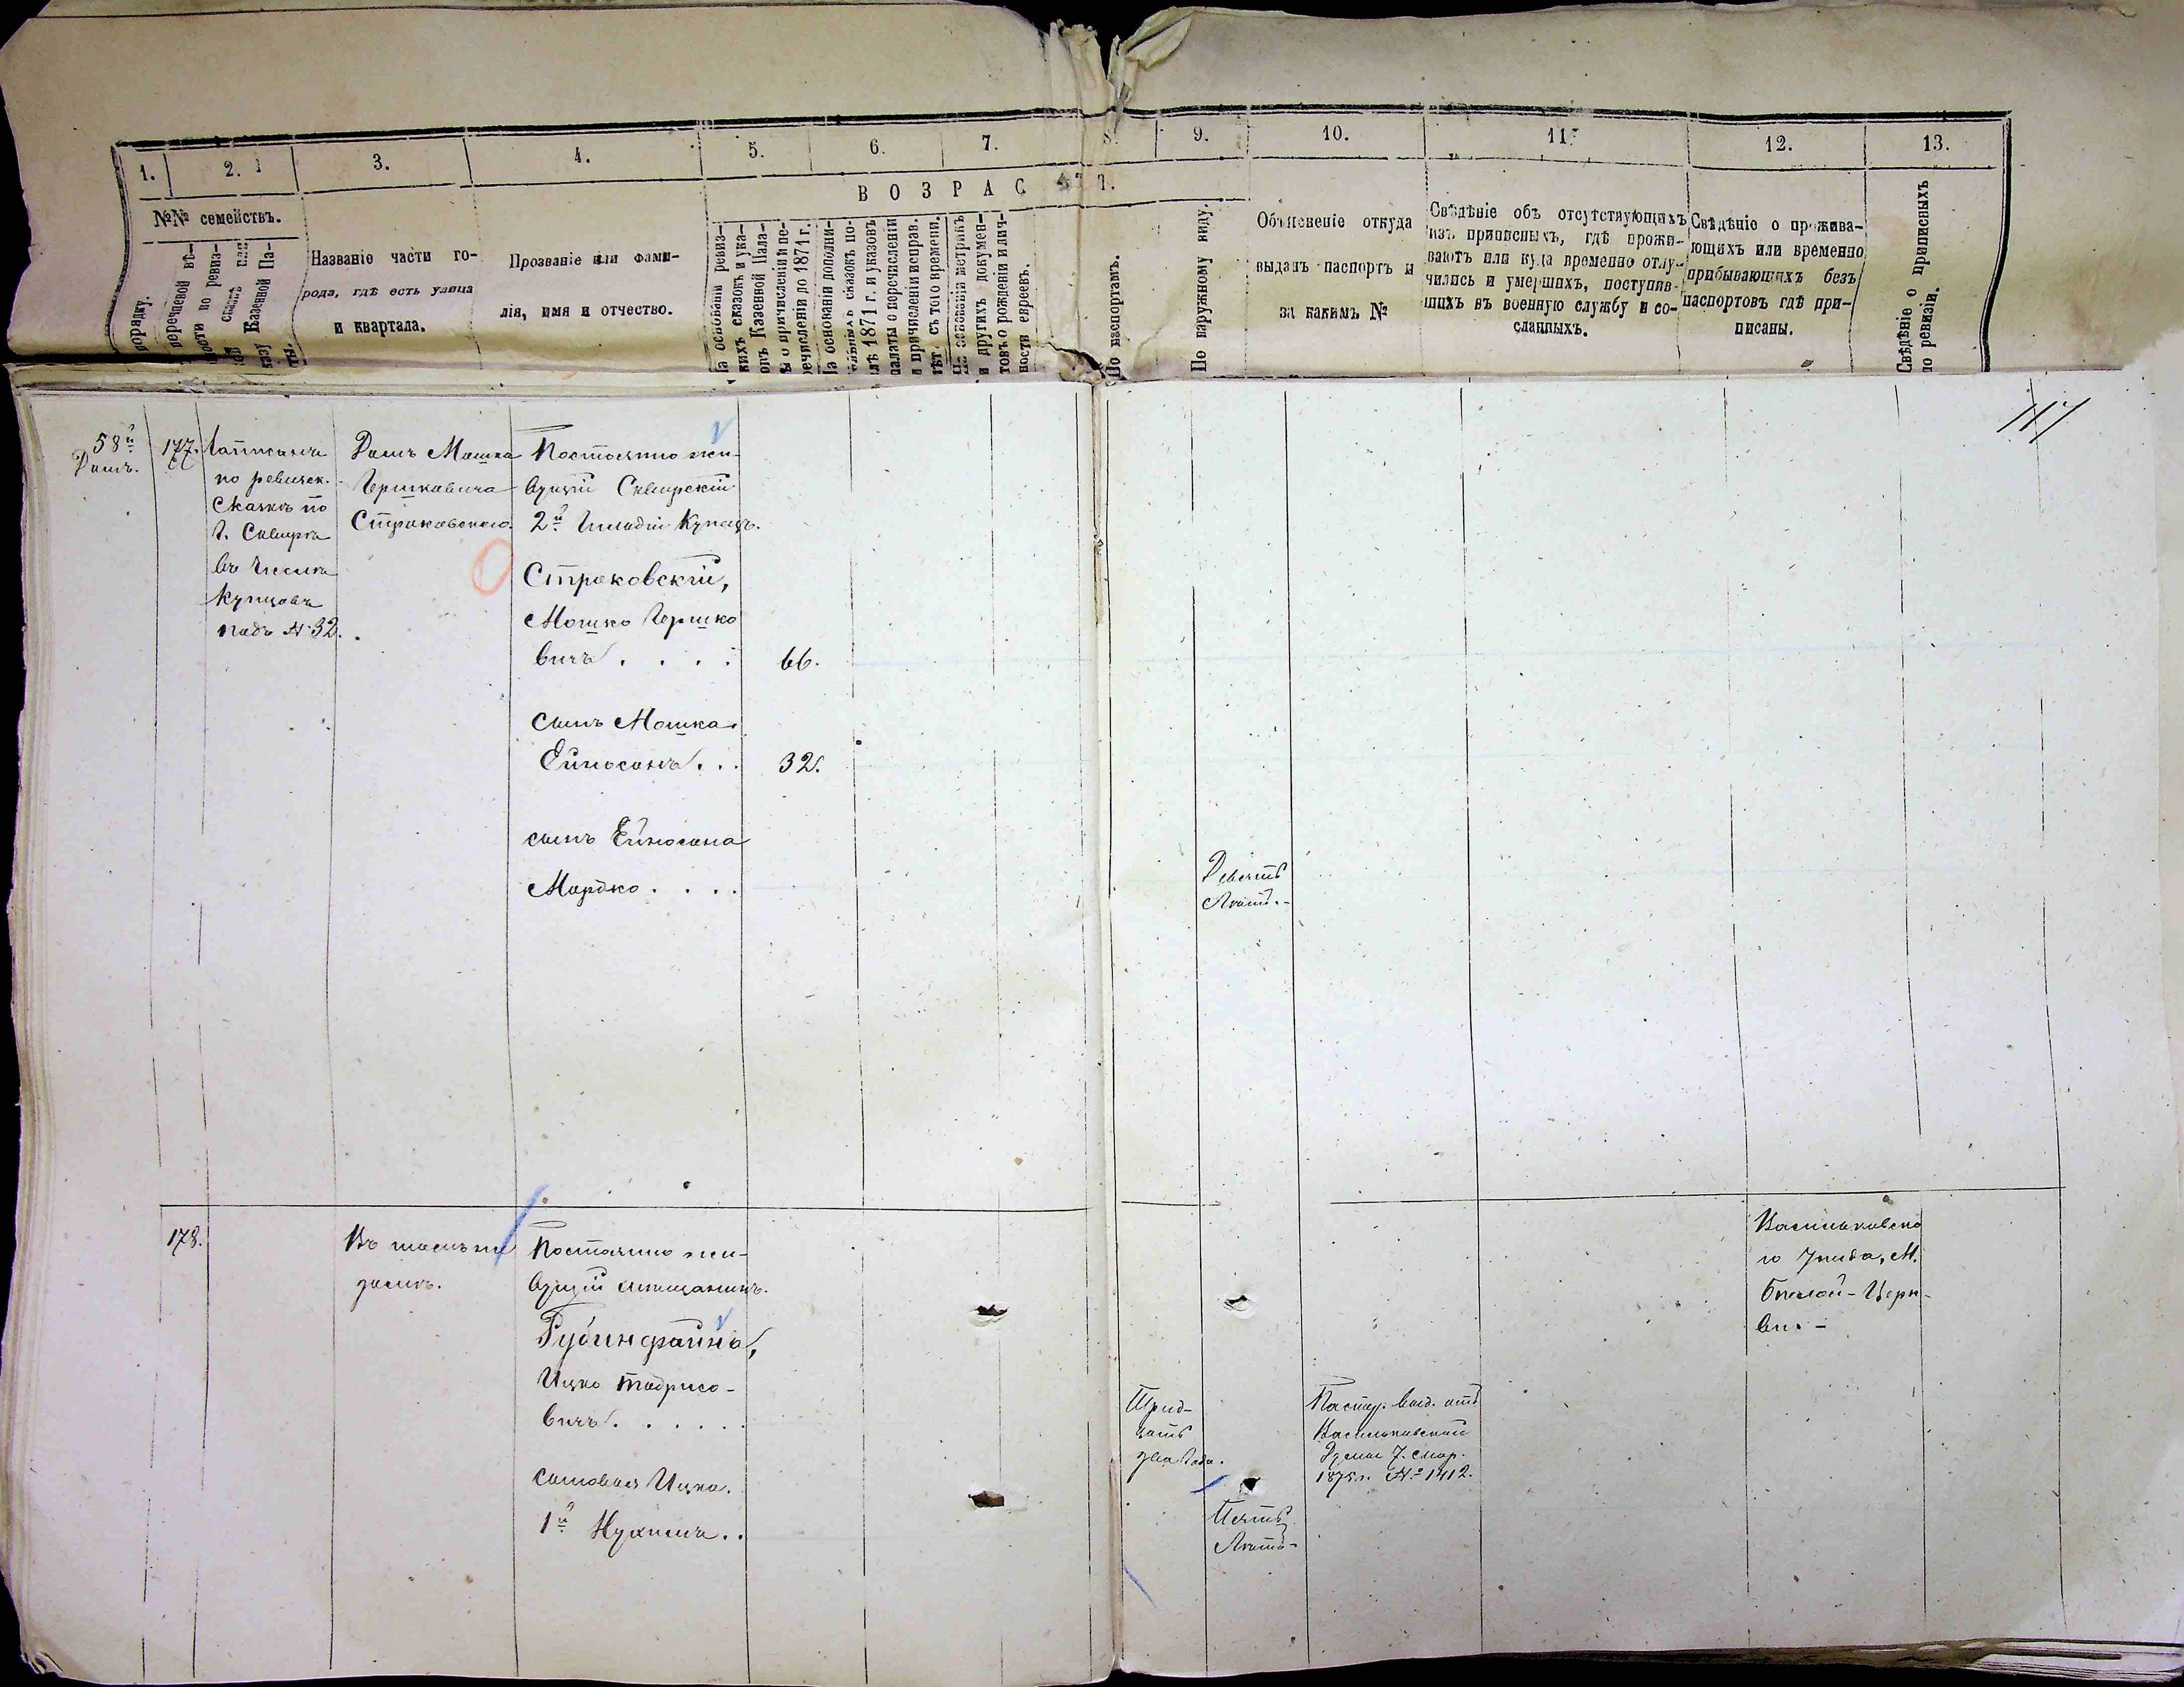 1.
2.
3.
4.
5.
6.
7.
8.
9.
10.
11.
12.
13.
ВОЗРАСТ.
№№ семействъ.
порядку.
перечневой вѣ-
ности по ревиз-
ской сказкѣ или
указу Казенной Па-
ты.
Названіе части го-
рода, гдѣ есть улица
и квартала.
Прозваніе или фами-
лія, имя и отчество.
На основаніи ревиз-
скихъ сказокъ и ука-
зовъ Казенной Пала-
ты о причисленіи и пе-
речисленіи до 1871 г.
На основаніи дополни-
тельныхъ сказокъ по-
слѣ 1871 г. и указовъ
палаты о перечисленіи
и причисленіи исправ.
лѣт. съ того времени.
На основаніи метрикъ
и другихъ докумен-
товъ о рожденіи и лич-
ности евреевъ.
По паспортамъ.
По наружному виду.
Объясненіе откуда
выданъ паспортъ и
за какимъ №
Свѣдѣніе объ отсутствующихъ
изъ приписныхъ, гдѣ прожи-
ваютъ или куда временно отлу-
чились и умершихъ, поступив-
шихъ въ военную службу и со-
сланныхъ.
Свѣдѣніе о прожива-
ющихъ или временно
прибывающихъ безъ
паспортовъ гдѣ при-
писаны.
Свѣдѣніе о приписныхъ
по ревизіи.
117
58й
Домъ.
177.
Записанъ
по ревизск.
Сказкѣ по
Г. Сквирѣ
въ числѣ
Купцовъ
подъ № 32.
Домъ Мошка
Гершковича
Страковскаго.
Постоянно жи-
вущій Сквирскій
2й Гильдіи Купецъ.
Страковскій,
Мошко Гершко
вичъ . . . .
66.
сынъ Мошка
Ейносонъ . . .
32.
сынъ Ейносона
Мордко . . . .
Девять
Лѣтъ. -
178.
Въ томъ же
домѣ.
Постоянно жи-
вущій мѣщанинъ.
Рубинфайнъ,
Ицко Тодрисо-
вичъ . . . . .
Трид-
цать
два Года.
Паспор. выд. отъ
Васильковской
Думы 7. Г.
№ 1412.
Васильковска
го Уѣзда, М.
Бѣлой-Церк-
ви. -
сыновья Ицка.
1й Нухимъ . .
Шесть
Лѣтъ -